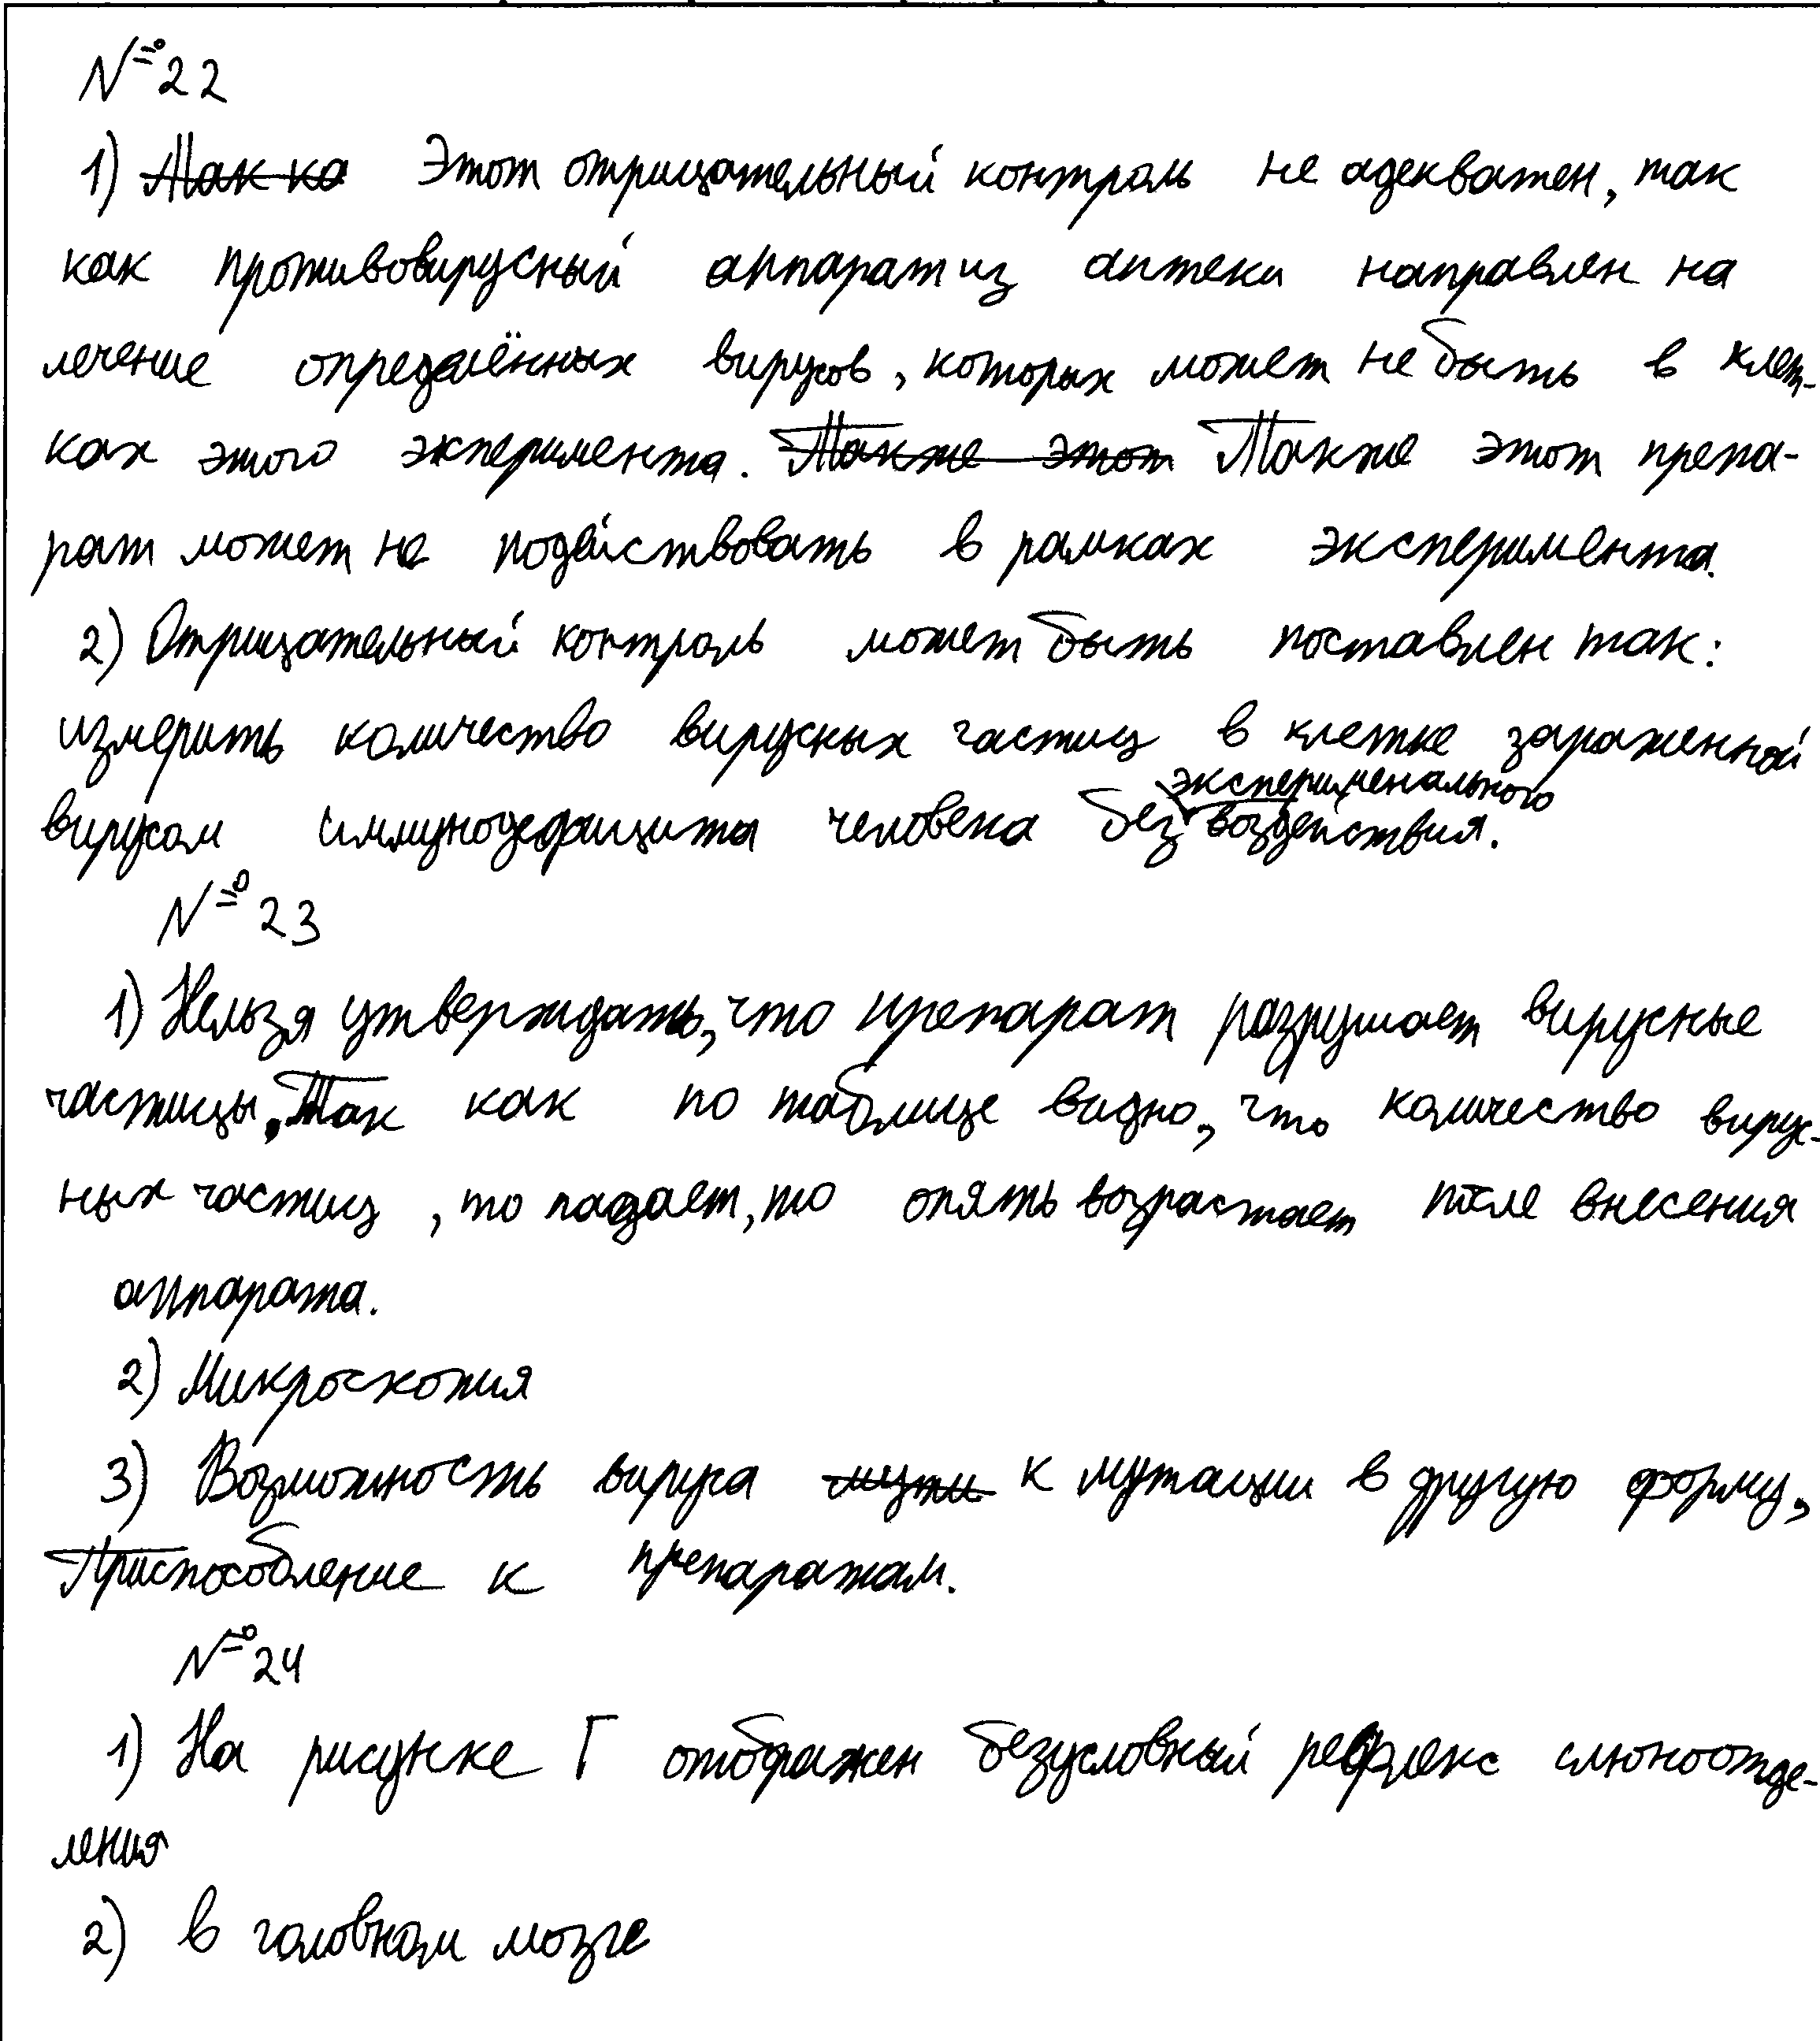 №22
1) ~~Так ка~~ Этот отрицательный контроль не адекватен, так
как противовирусный аппарат из аптеки направлен на
лечение определённых вирусов, которых может не быть в клет-
ках этого эксперимента. ~~Также этот~~ Также этот препа-
рат может не подействовать в рамках эксперимента.
2) Отрицательный контроль может быть поставлен так:
измерить количество вирусных частиц в клетке зараженной
вирусом иммунодефицита человека без экспериментального воздействия.
№23
1) Нельзя утверждать, что препарат разрушает вирусные
частицы, Так как по таблице видно, что количество вирус-
ных частиц, то падает, то опять возрастает после внесения
аппарата.
2) Микроскопия
3) Возможность вируса ~~мути~~ к мутации в другую форму,
Приспособление к препаратам.
№24
1) На рисунке Г отображен безусловный рефлекс слюноотде-
ления
2) в головном мозге